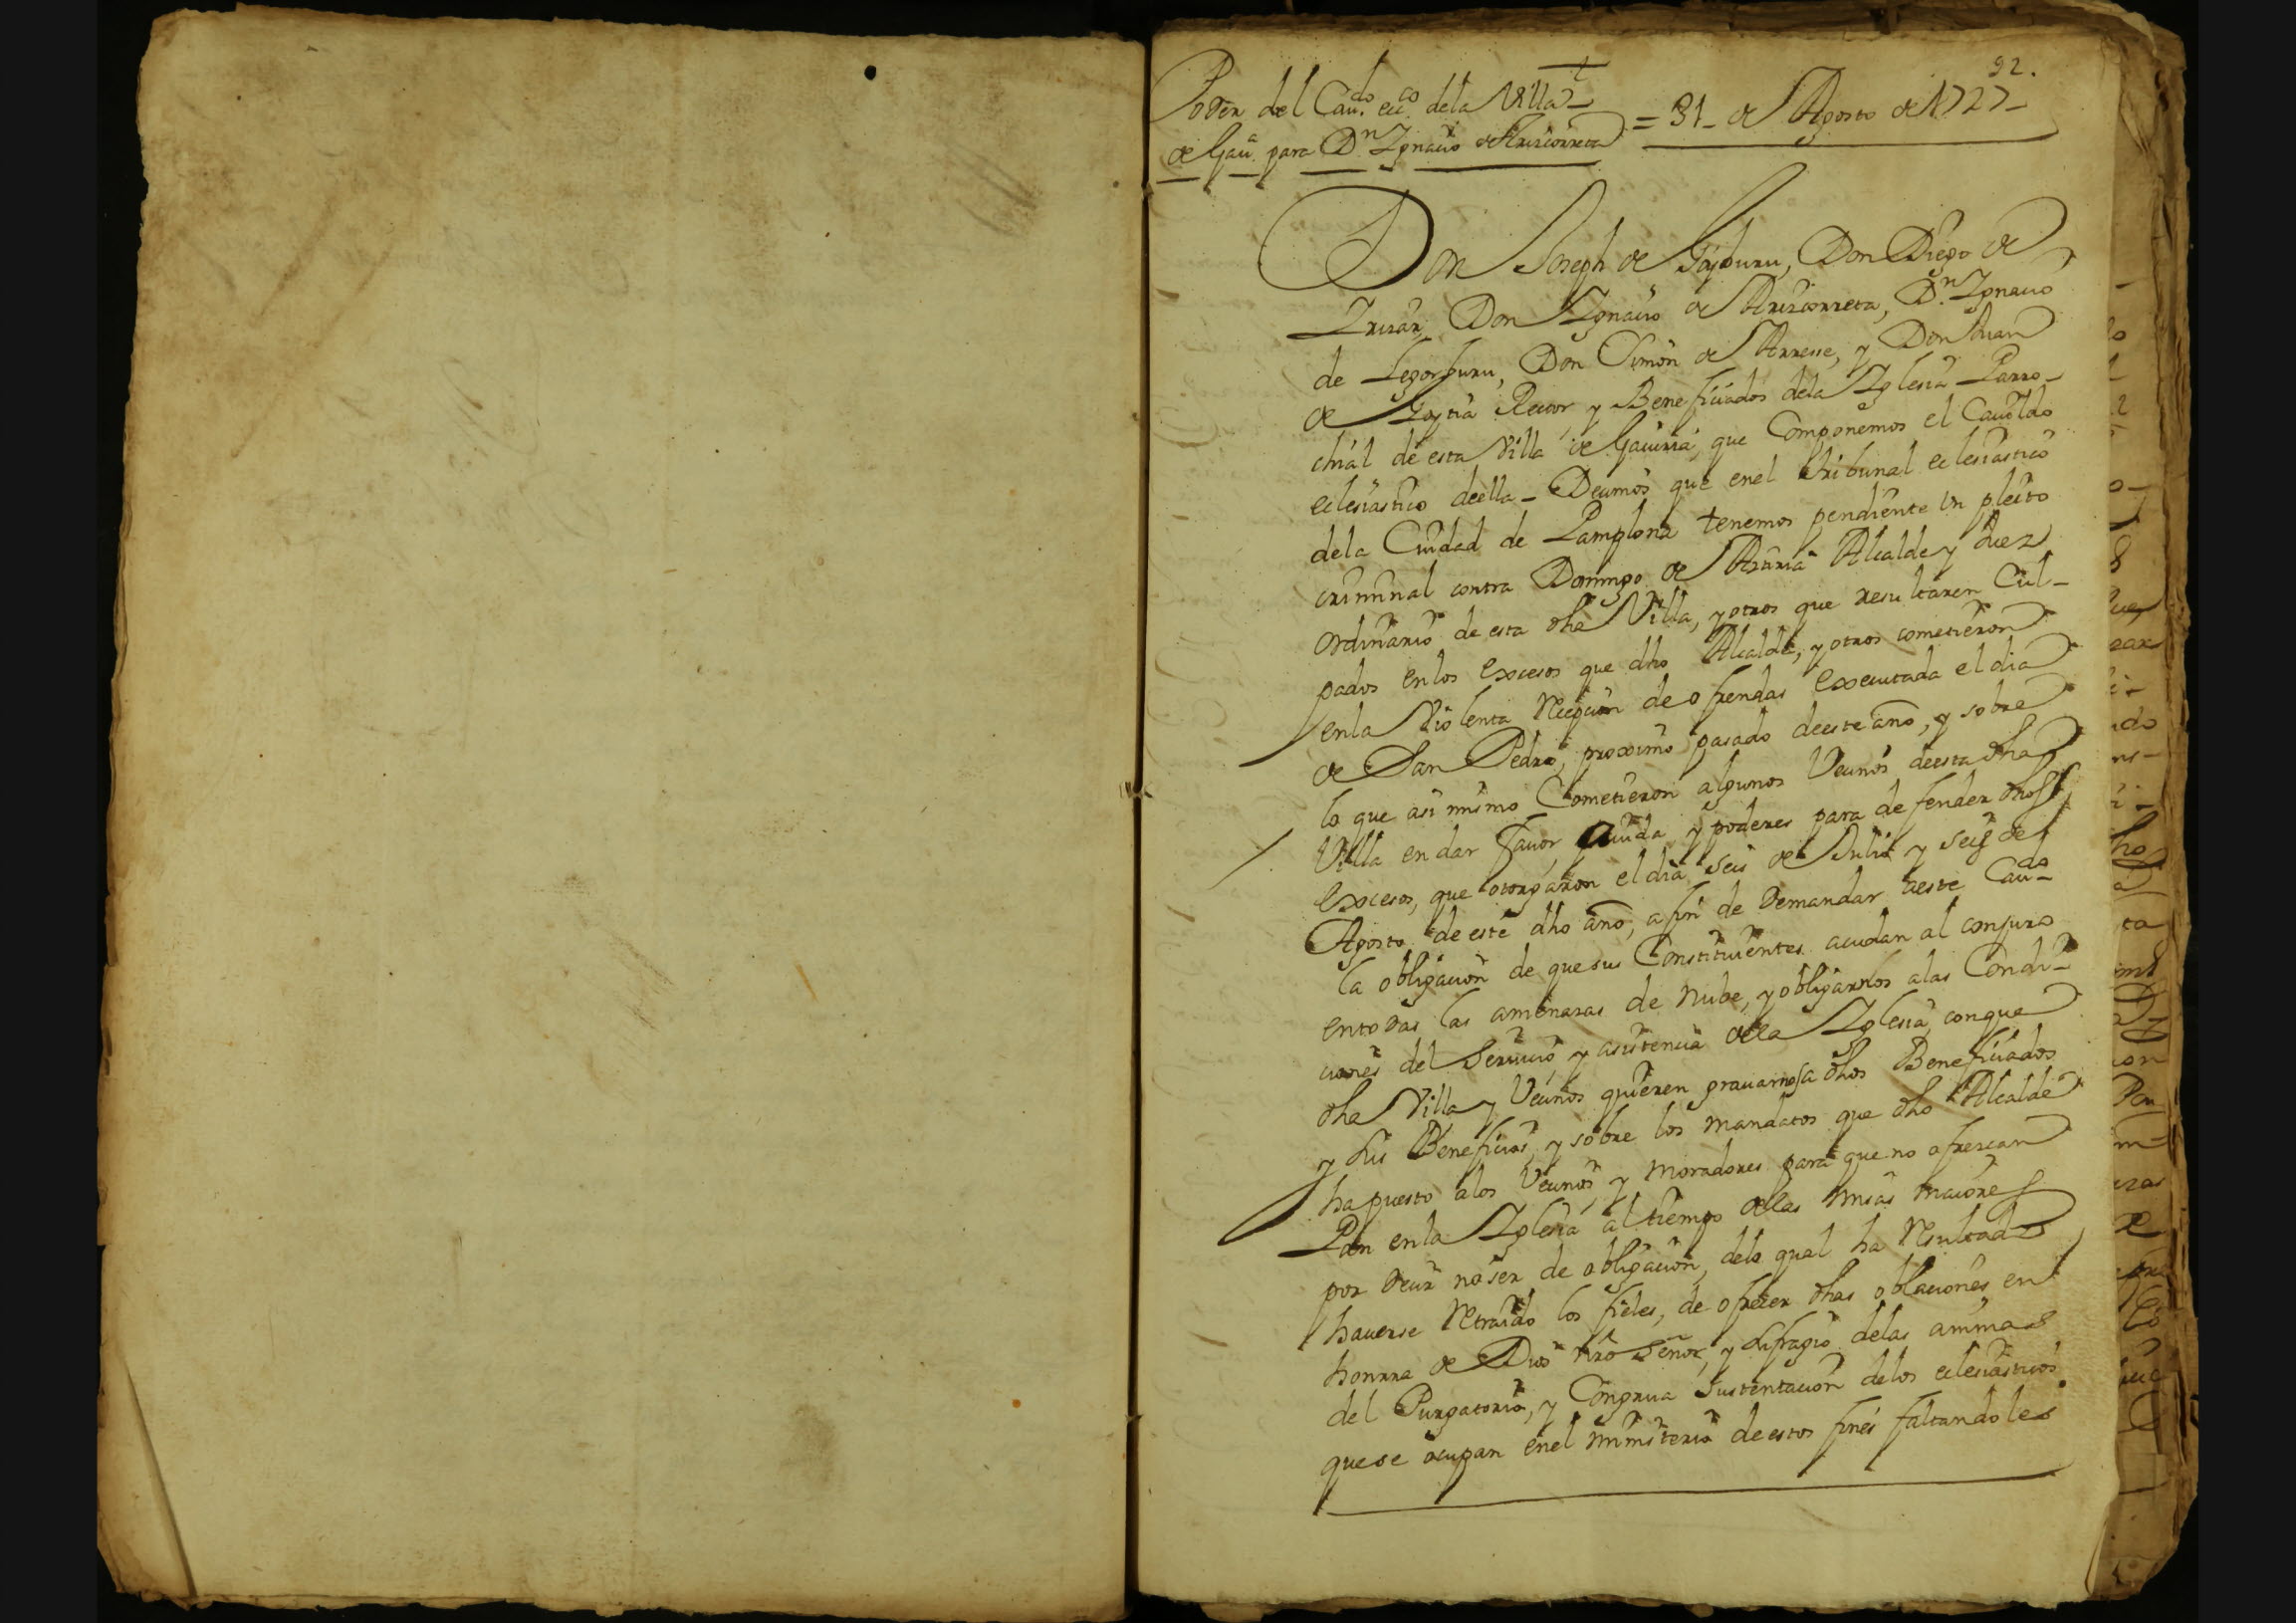 92.
Poder del Cau.do ecc.co dela Villa
de Gau.a para D.n Ygnacio de Arizcorreta
= 31 - de Agosto de 1727 -
Don Joseph de Jayburu, Don Diego de
Yrizar, Don Ygnacio de Arizcorreta, D.n Ygnacio
de Legorburu, Don Simon de Arrese, y Don Juan
de Loytia Rector, y Beneficiados dela Yglesia Parro-
chial de esta Villa de Gauiria, que Componemos el Cauildo
eclesiastico deella - Decimos que enel tribunal eclesiastico
dela Ciudad de Pamplona tenemos pendiente Un pleito
criminal contra Domingo de Azuria Alcalde y Juez
ordinario de esta dha Villa, y otros que resultaren Cul-
pados en los excesos que dho Alcalde, y otros cometieron
enla Violenta Recepcion de ofrendas executada el dia
de San Pedro, proximo pasado deeste año, y sobre
lo que asi mismo Cometieron algunos Vecinos deesta dha
Villa en dar favor, aiuda y poderes para defender dhos
excesos, que otorgaron el dia seis de Julio y seis de
Agosto de este dho año, a fin de Demandar aeste Cau.do
la obligacion de que sus Constituientes acudan al conjuro
entodas las amenazas de nube, y obligarlos alas Condi-
ciones del Seruicio, y asistencia dela Yglesia, conque
dha Villa y Vecinos quieren grauarnos a dhos Beneficiados
y sus Beneficios, y sobre los mandatos que dho Alcalde
ha puesto alos Vecinos, y moradores para que no ofrezcan
Pan enla Yglesia al tiempo delas misas maiores
por decir no ser de obligacion, delo qual ha Resultado
hauerse Retraido los fieles, de ofrecer dhas oblaciones en
honrra de Dios nro Señor, y sufragio delas animas
del Purgatorio, y Congrua Sustentacion delos eclesiasticos
que se ocupan enel ministerio de estos fines faltandoles